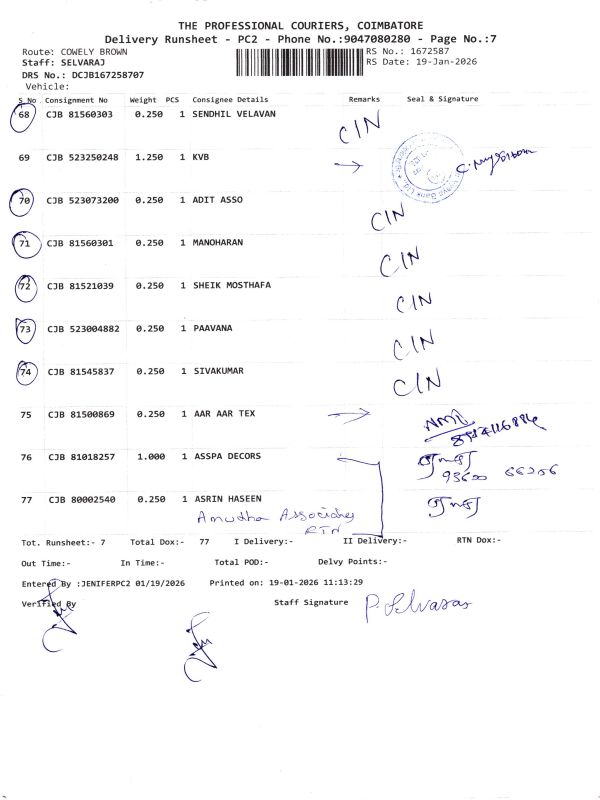 THE PROFESSIONAL COURIERS, COIMBATORE
Delivery Runsheet - PC2 - Phone No.:9047080280 - Page No.:7
Route: COWELY BROWN RS No.: 1672587
Staff: SELVARAJ RS Date: 19-Jan-2026
DRS No.: DCJB167258707
Vehicle:
S.No Consignment No Weight PCS Consignee Details Remarks Seal & Signature
68 CJB 81560303 0.250 1 SENDHIL VELAVAN C/N
69 CJB 523250248 1.250 1 KVB
70 CJB 523073200 0.250 1 ADIT ASSO C/N
71 CJB 81560301 0.250 1 MANOHARAN C/N
72 CJB 81521039 0.250 1 SHEIK MOSTHAFA C/N
73 CJB 523004882 0.250 1 PAAVANA C/N
74 CJB 81545837 0.250 1 SIVAKUMAR C/N
75 CJB 81500869 0.250 1 AAR AAR TEX
76 CJB 81018257 1.000 1 ASSPA DECORS
77 CJB 80002540 0.250 1 ASRIN HASEEN
Anudha Associates
RTN
Tot. Runsheet:- 7 Total Dox:- 77 I Delivery:- II Delivery:- RTN Dox:-
Out Time:- In Time:- Total POD:- Delvy Points:-
Entered By :JENIFERPC2 01/19/2026 Printed on: 19-01-2026 11:13:29
Verified By Staff Signature P. Selvaraj